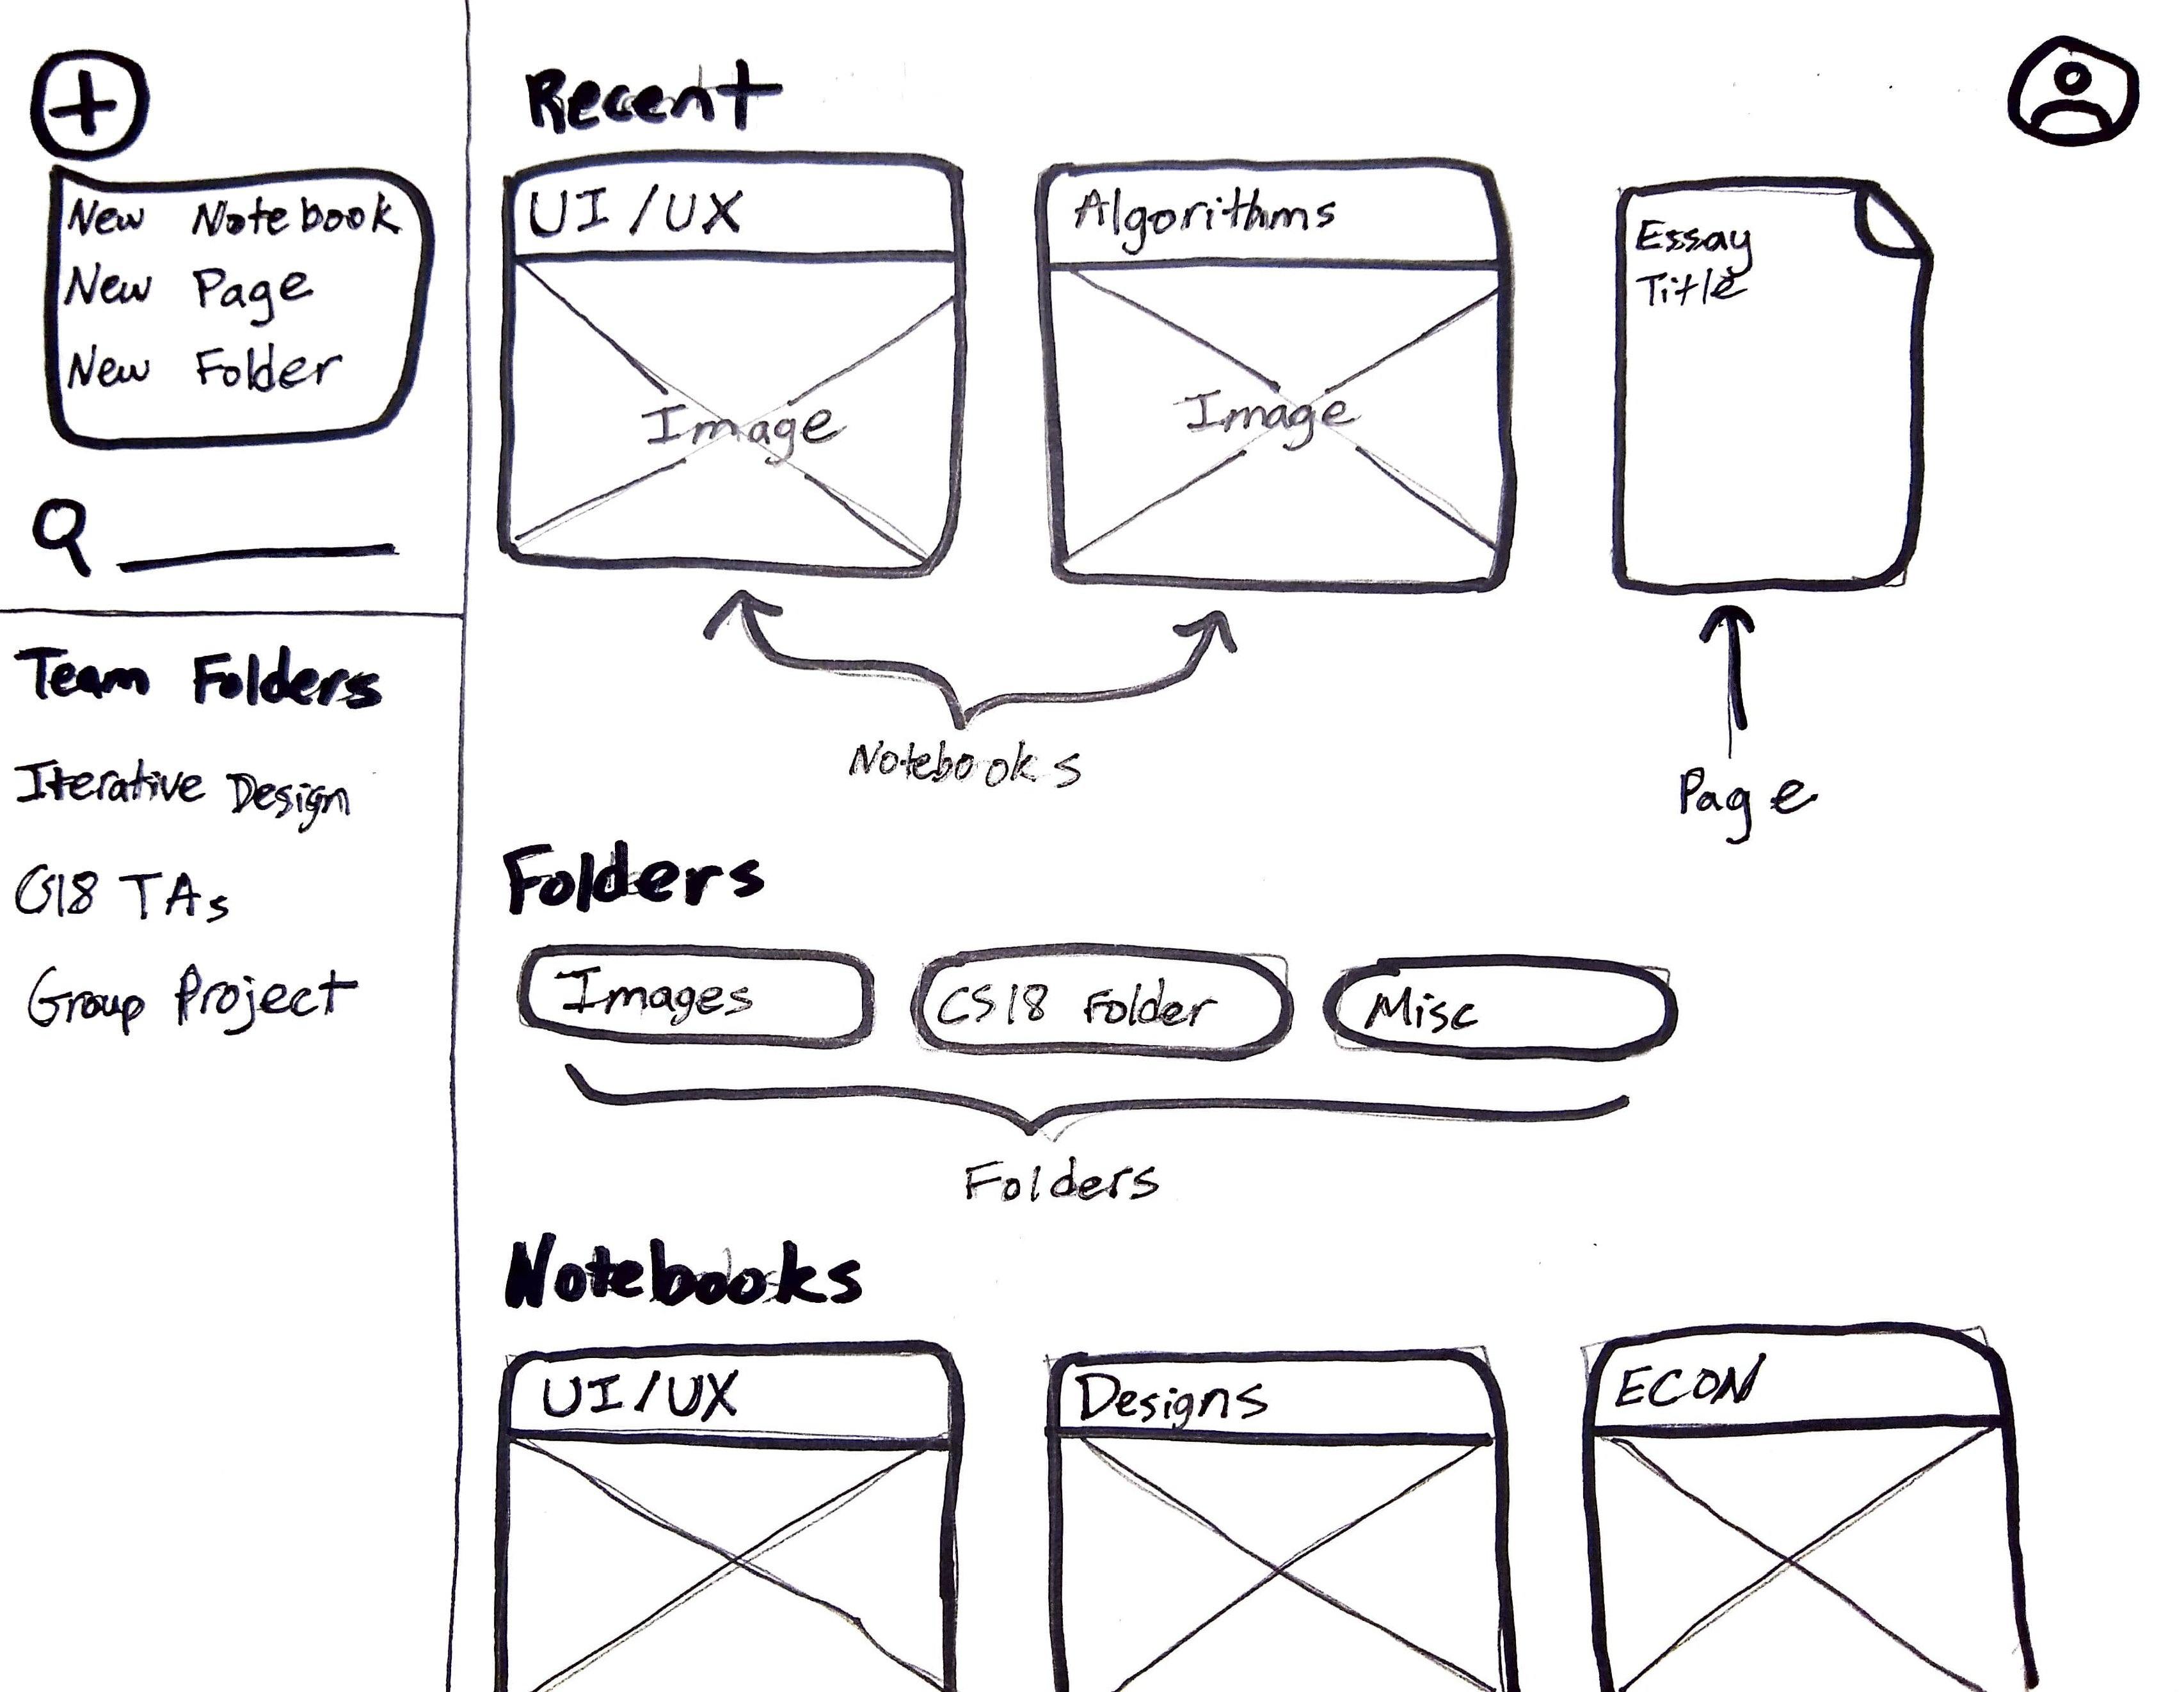 New Notebook
New Page
New Folder
Team Folders
Iterative Design
CS18 TAs
Group Project
Recent
UI/UX
Image
Algorithms
Image
Essay
Title
Notebooks
Page
Folders
Images
CS18 Folder
Misc
Folders
Notebooks
UI/UX
Designs
ECON